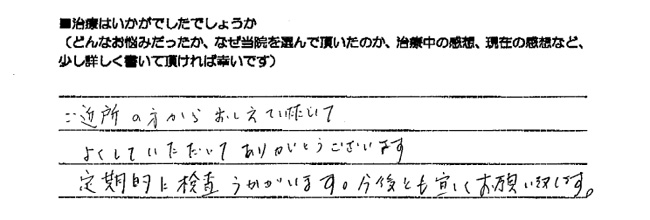 ■治療はいかがでしたでしょうか
（どんなお悩みだったか、なぜ当院を選んで頂いたのか、治療中の感想、現在の感想など、
少し詳しく書いて頂ければ幸いです）
ご近所の方からおしえていただいて
よくしていただいてありがとうございます
定期的に検査うかがいます。今後とも宜しくお願い致します。